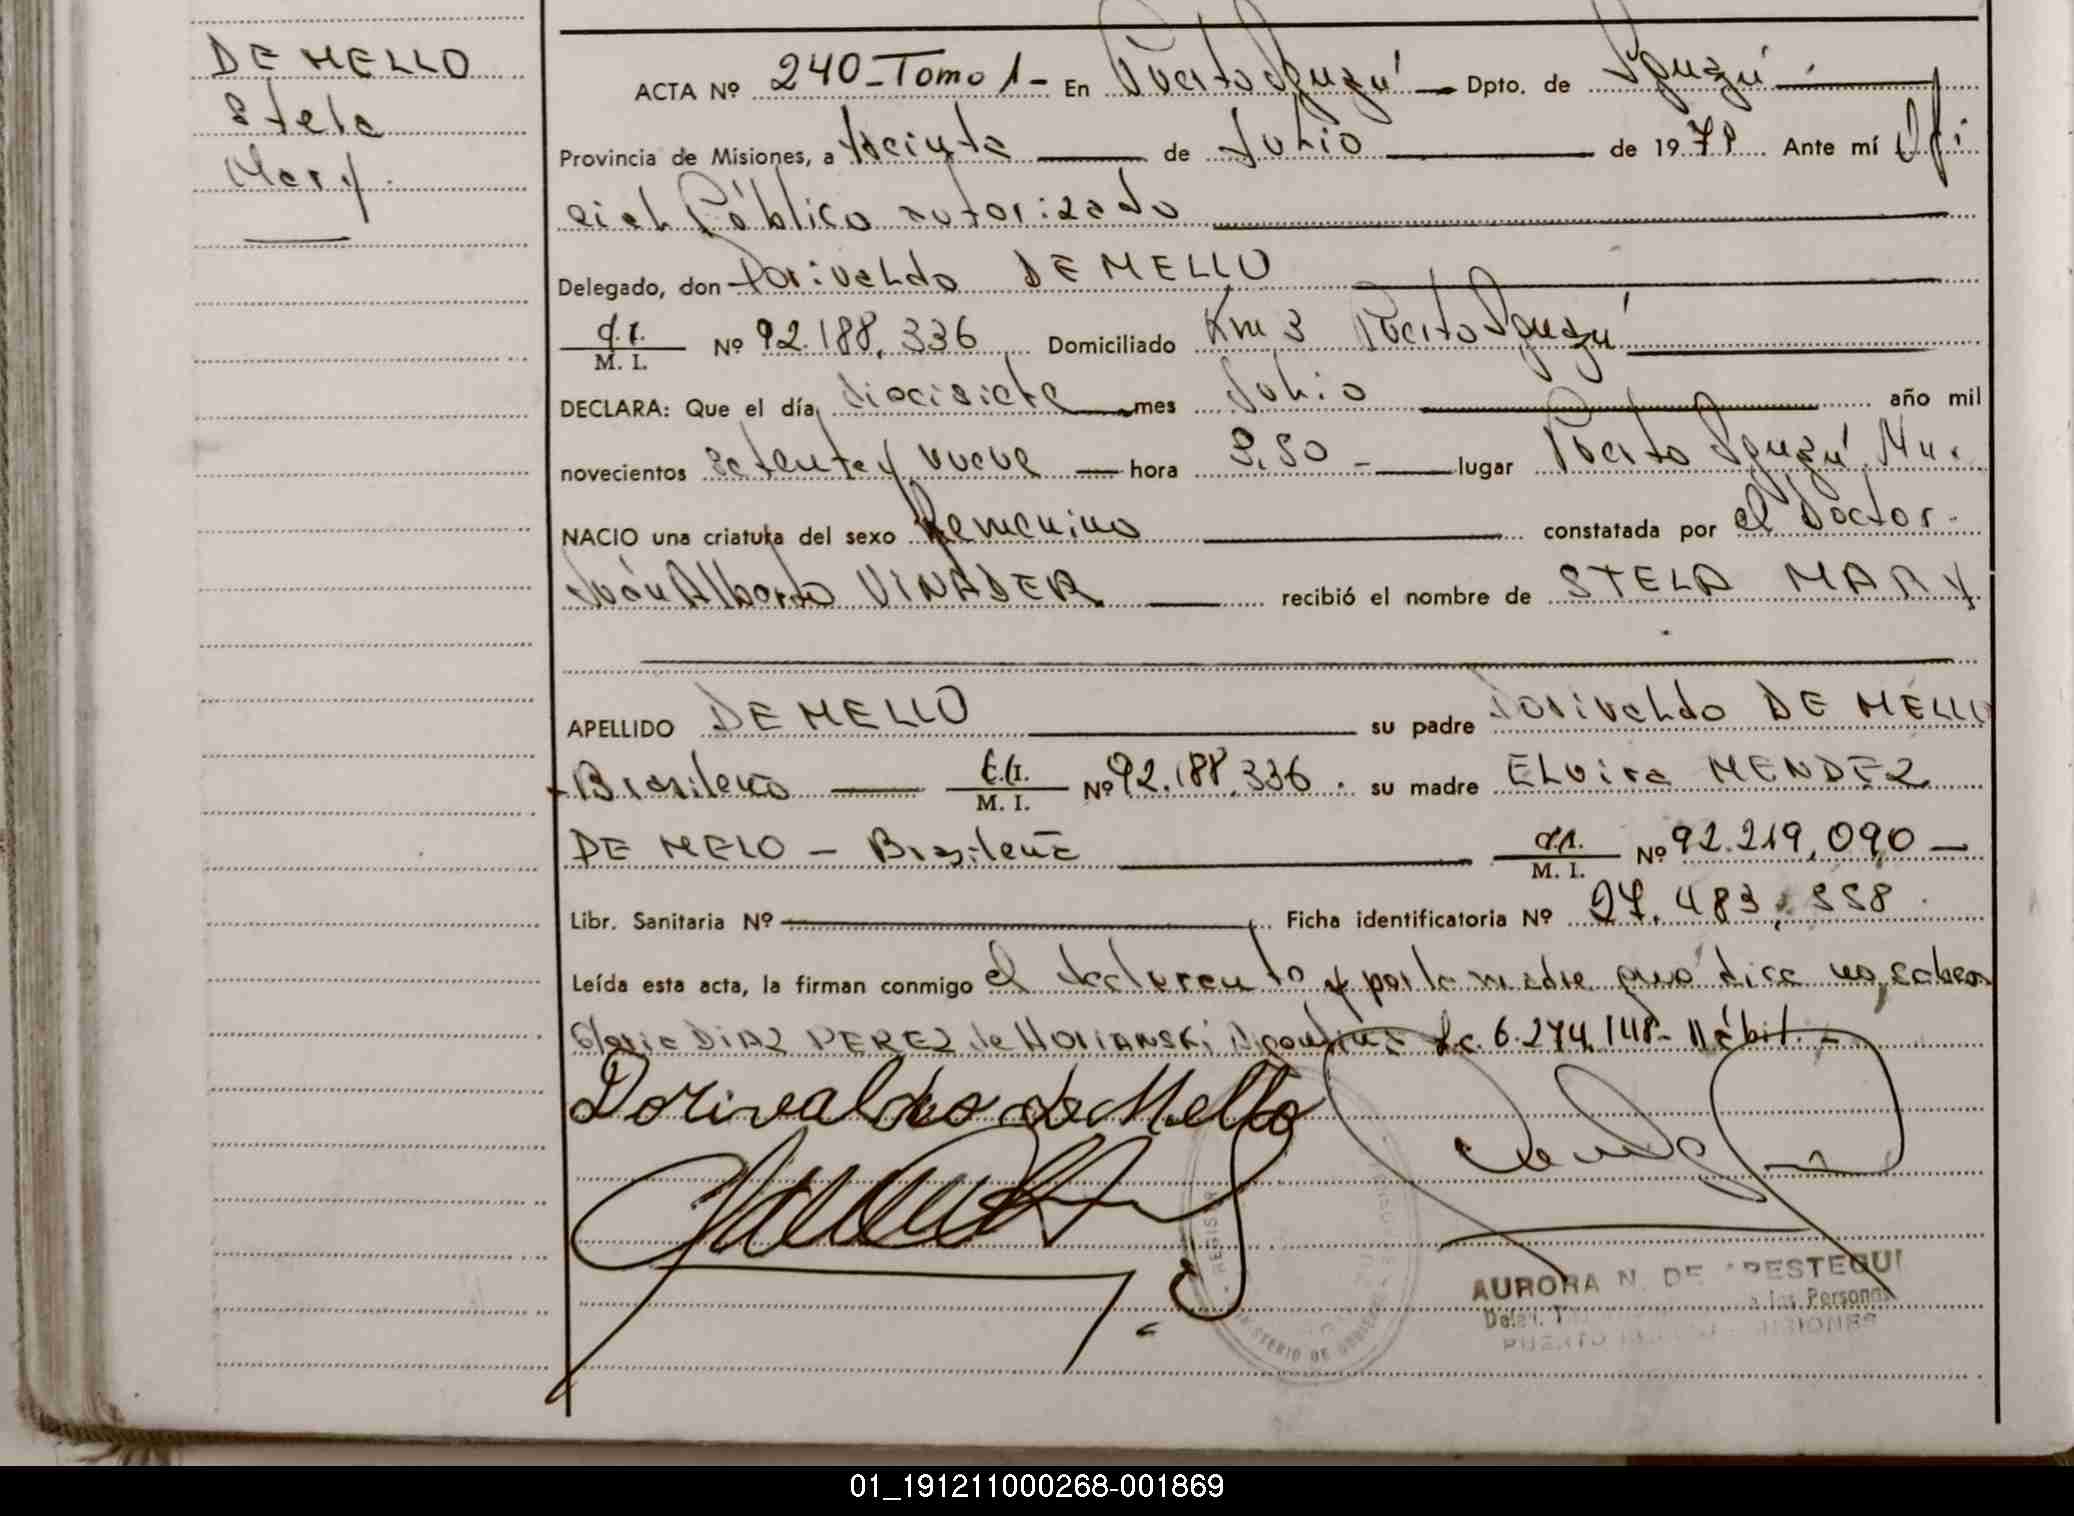 DE MELLO
Stela
Mary.
ACTA Nº 240 - Tomo 1 - En Puerto Iguazú Dpto. de Iguazú
Provincia de Misiones, a treinta de Julio de 1979 Ante mí Ofi
cial Público autorizado
Delegado, don Dorivaldo DE MELLO
C.I.
M. I. Nº 92.188.336 Domiciliado Km 3 Puerto Iguazú
DECLARA: Que el día diecisiete mes Julio año mil
novecientos setenta y nueve hora lugar Puerto Iguazú, Mnes.
NACIO una criatura del sexo femenino constatada por el Doctor
Juán Alberto VINADER recibió el nombre de STELA MARY
APELLIDO DE MELLO su padre Dorivaldo DE MELLO
Brasileño C.I.
M. I. Nº 92.188.336. su madre Elvira MENDEZ
DE MELO - Brasileña C.I.
M. I. Nº 92.219.090 -
Libr. Sanitaria Nº Ficha identificatoria Nº 27.483.558
Leída esta acta, la firman conmigo el declarante y por la madre que dice no saber
Gloria DIAZ PEREZ de Argentina L.c. 6.274.148 - Hábil. -
Dorivaldo de Mello
AURORA N. DE ARESTEGUI
Personas
PUERTO MISIONES
MINISTERIO DE GOBIERNO
01_191211000268-001869